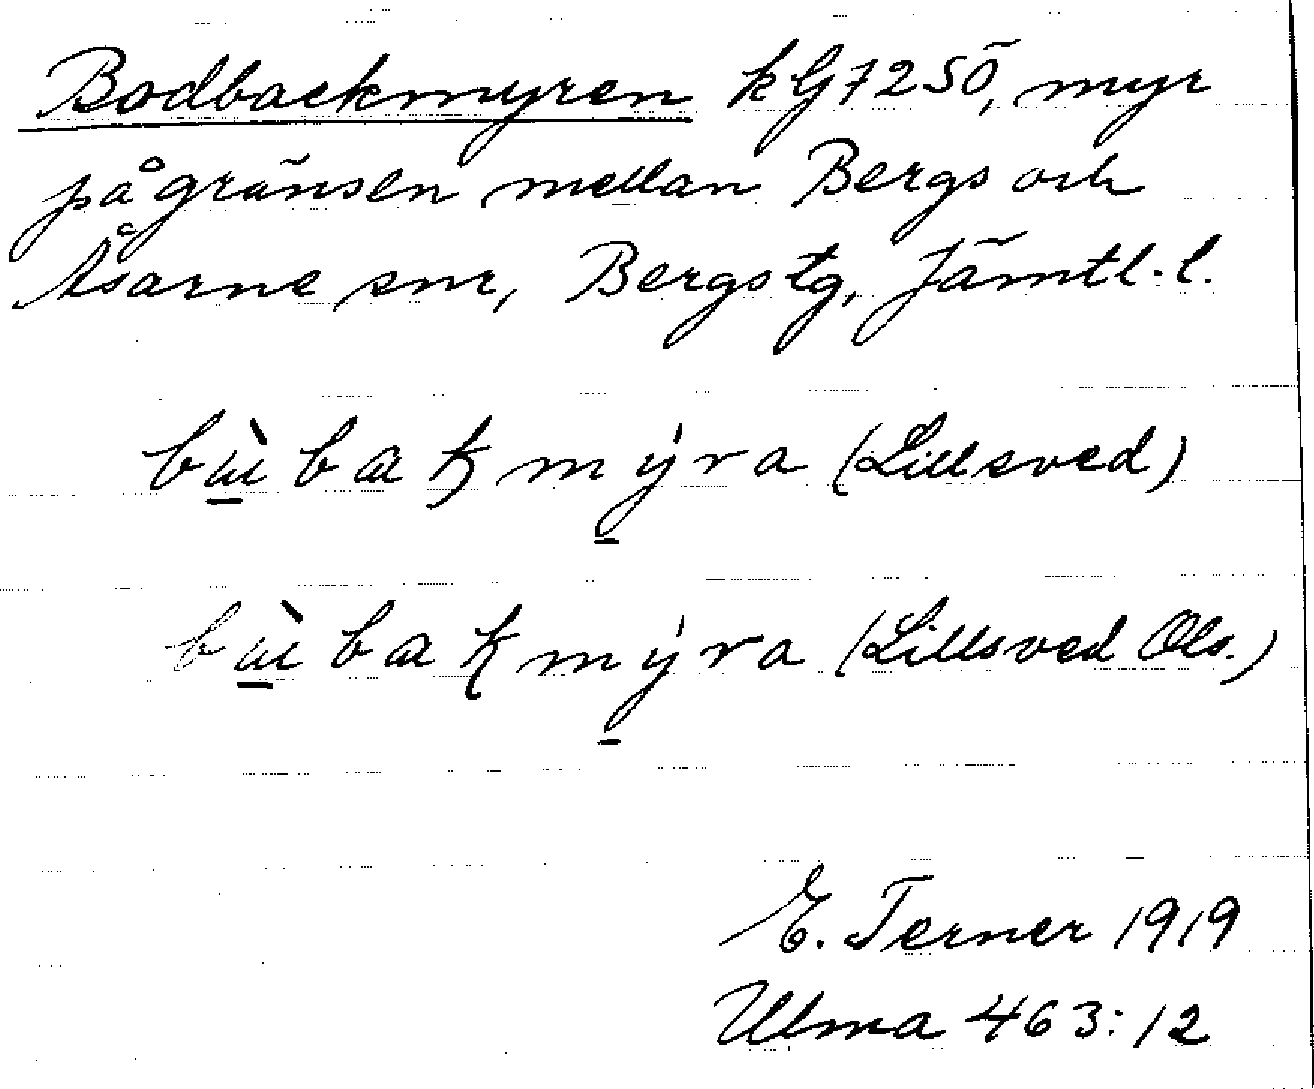 Bodbackmyren kG 72SÖ, myr
på gränsen mellan Bergs och
Åsarne snr, Bergs tg, Jämtl. l.
bùbakmýra (Lillsved)
bùbakmýra (Lillsved Ols.)
E. Terner 1919
Ulma 463:12